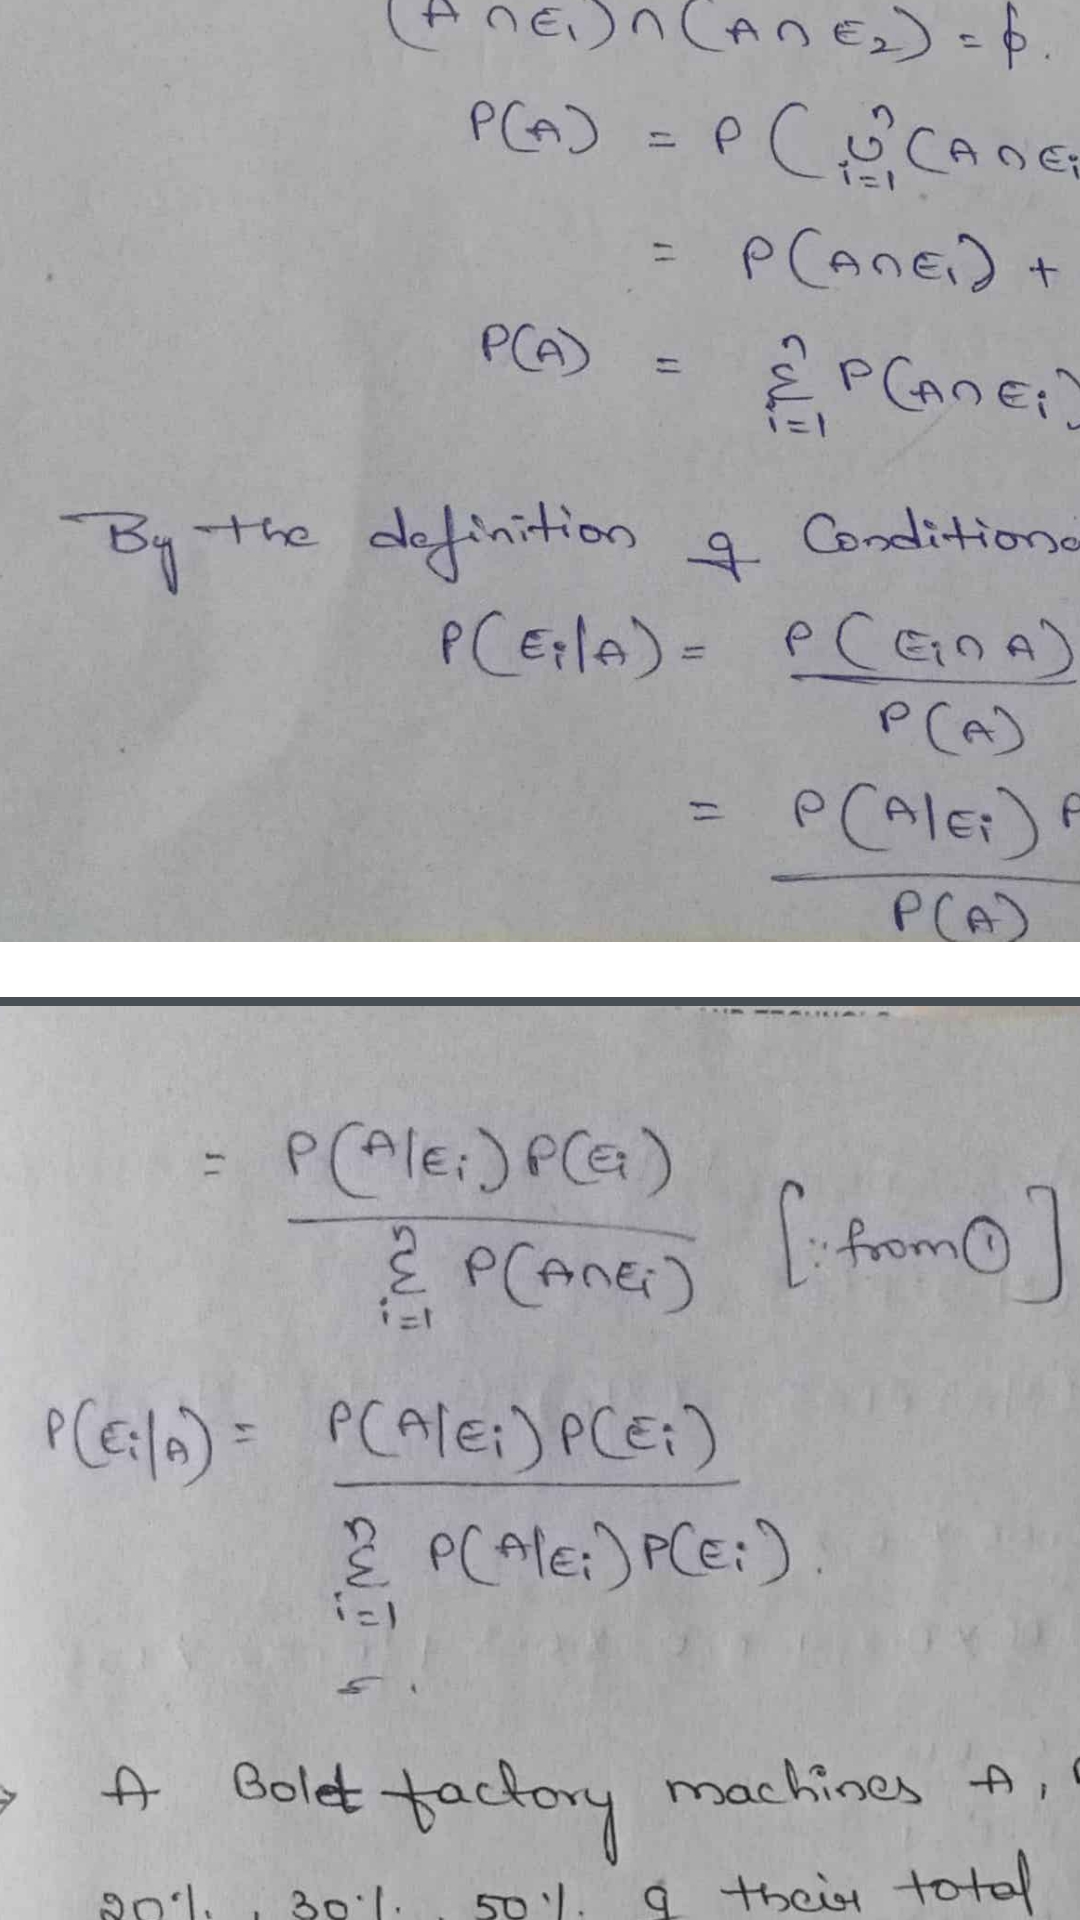 (A ∩ E₁) ∩ (A ∩ E₂) = ϕ.
P(A) = P( ⋃ⁿᵢ₌₁ (A ∩ Eᵢ
= P(A∩E₁) +
P(A) = Σⁿᵢ₌₁ P(A∩Eᵢ)
By the definition of Conditiona
P(Eᵢ|A) = P(Eᵢ∩A) / P(A)
= P(A|Eᵢ) P / P(A)
= P(A|Eᵢ) P(Eᵢ) / Σⁿᵢ₌₁ P(A∩Eᵢ) [∵ from ①]
P(Eᵢ|A) = P(A|Eᵢ) P(Eᵢ) / Σⁿᵢ₌₁ P(A|Eᵢ) P(Eᵢ).
A Bolt factory machines A,
20%, 30%, 50% of their total